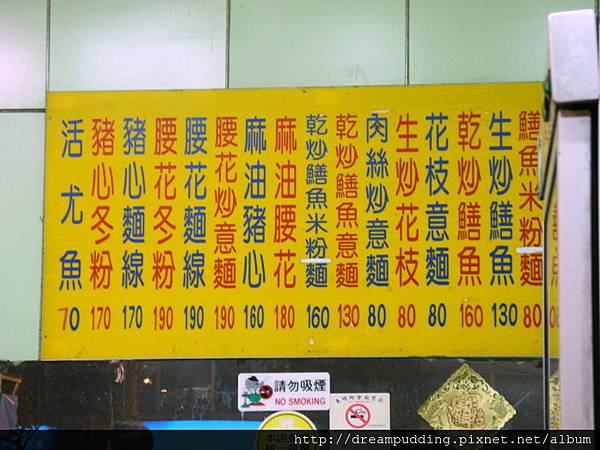 鱔魚米粉麵 80
生炒鱔魚 130
乾炒鱔魚 160
花枝意麵 80
生炒花枝 80
肉絲炒意麵 80
乾炒鱔魚意麵 130
乾炒鱔魚米粉麵 160
麻油腰花 180
麻油豬心 160
腰花炒意麵 190
腰花麵線 190
腰花冬粉 190
豬心麵線 170
豬心冬粉 170
活尤魚 70
請勿吸煙
NO SMOKING
http://dreampudding.pixnet.net/album